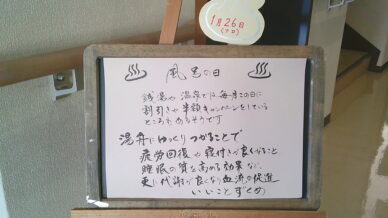 1月26日
(プロ)
♨ 風呂の日 ♨
銭湯や温泉では毎月この日に
割引きや半額キャンペーンをしている
ところもあるそうです
湯舟にゆっくりつかることで
疲労回復や寝付きが良くなること
睡眠の質を高める効果など、
更に代謝が良くなり血流の促進
いいことずくめ